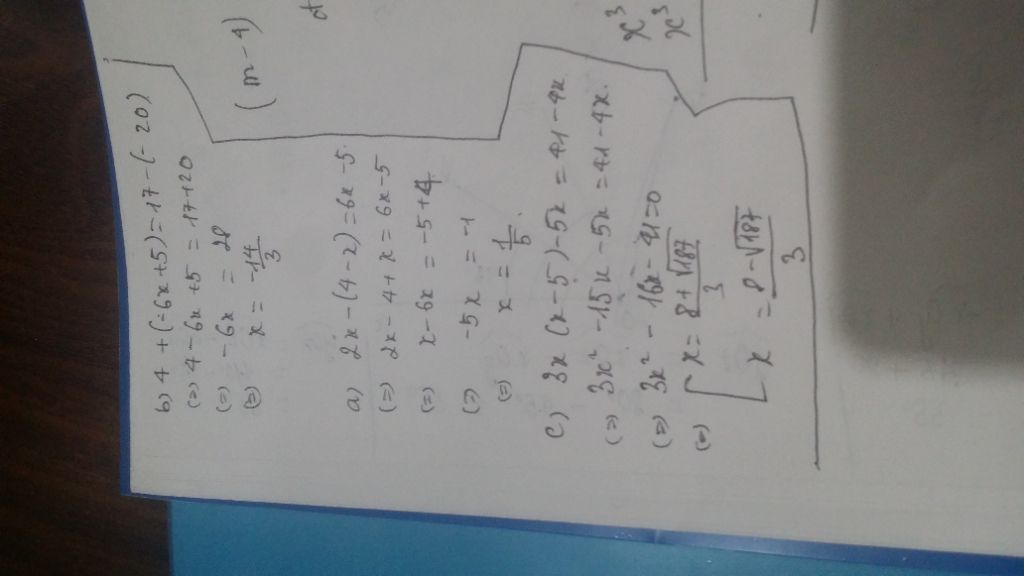 b) 4 + (-6x + 5) = 17 - (-20)
(=) 4 - 6x + 5 = 17 + 20
(=) -6x = 28
(=) x = -14/3
(m - 4)
a) 2x - (4 - 2) = 6x - 5.
(=) 2x - 4 + x = 6x - 5
(=) x - 6x = -5 + 4
(=) -5x = -1
(=) x = 1/5.
c) 3x (x - 5) - 5x = 41 - 4x
(=) 3x² - 15x - 5x = 41 - 4x.
(=) 3x² - 16x - 41 = 0
(=) [ x = (8 + √187)/3
x = (8 - √187)/3
x³
x³